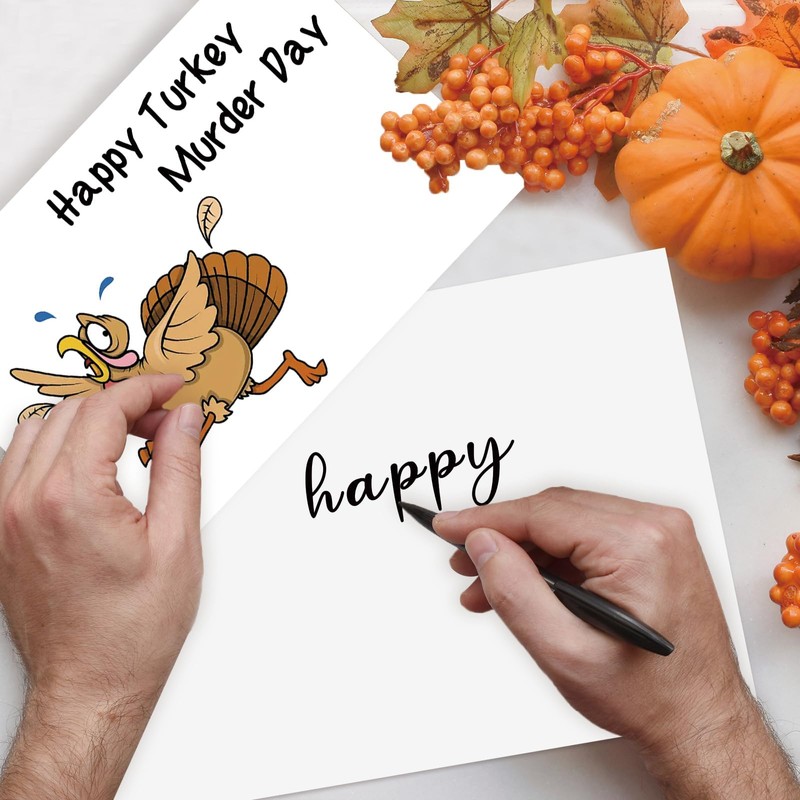 Happy Turkey
Murder Day
happy